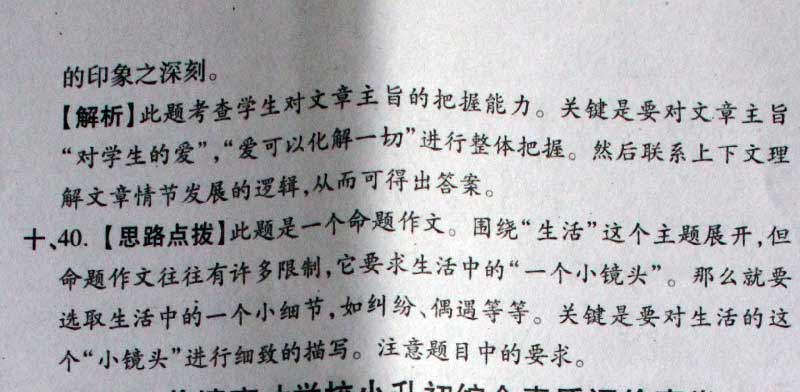 的印象之深刻。
【解析】此题考查学生对文章主旨的把握能力。关键是要对文章主旨
“对学生的爱”,“爱可以化解一切”进行整体把握。然后联系上下文理
解文章情节发展的逻辑,从而可得出答案。
十、40. 【思路点拨】此题是一个命题作文。围绕“生活”这个主题展开,但
命题作文往往有许多限制,它要求生活中的“一个小镜头”。那么就要
选取生活中的一个小细节,如纠纷、偶遇等等。关键是要对生活的这
个“小镜头”进行细致的描写。注意题目中的要求。